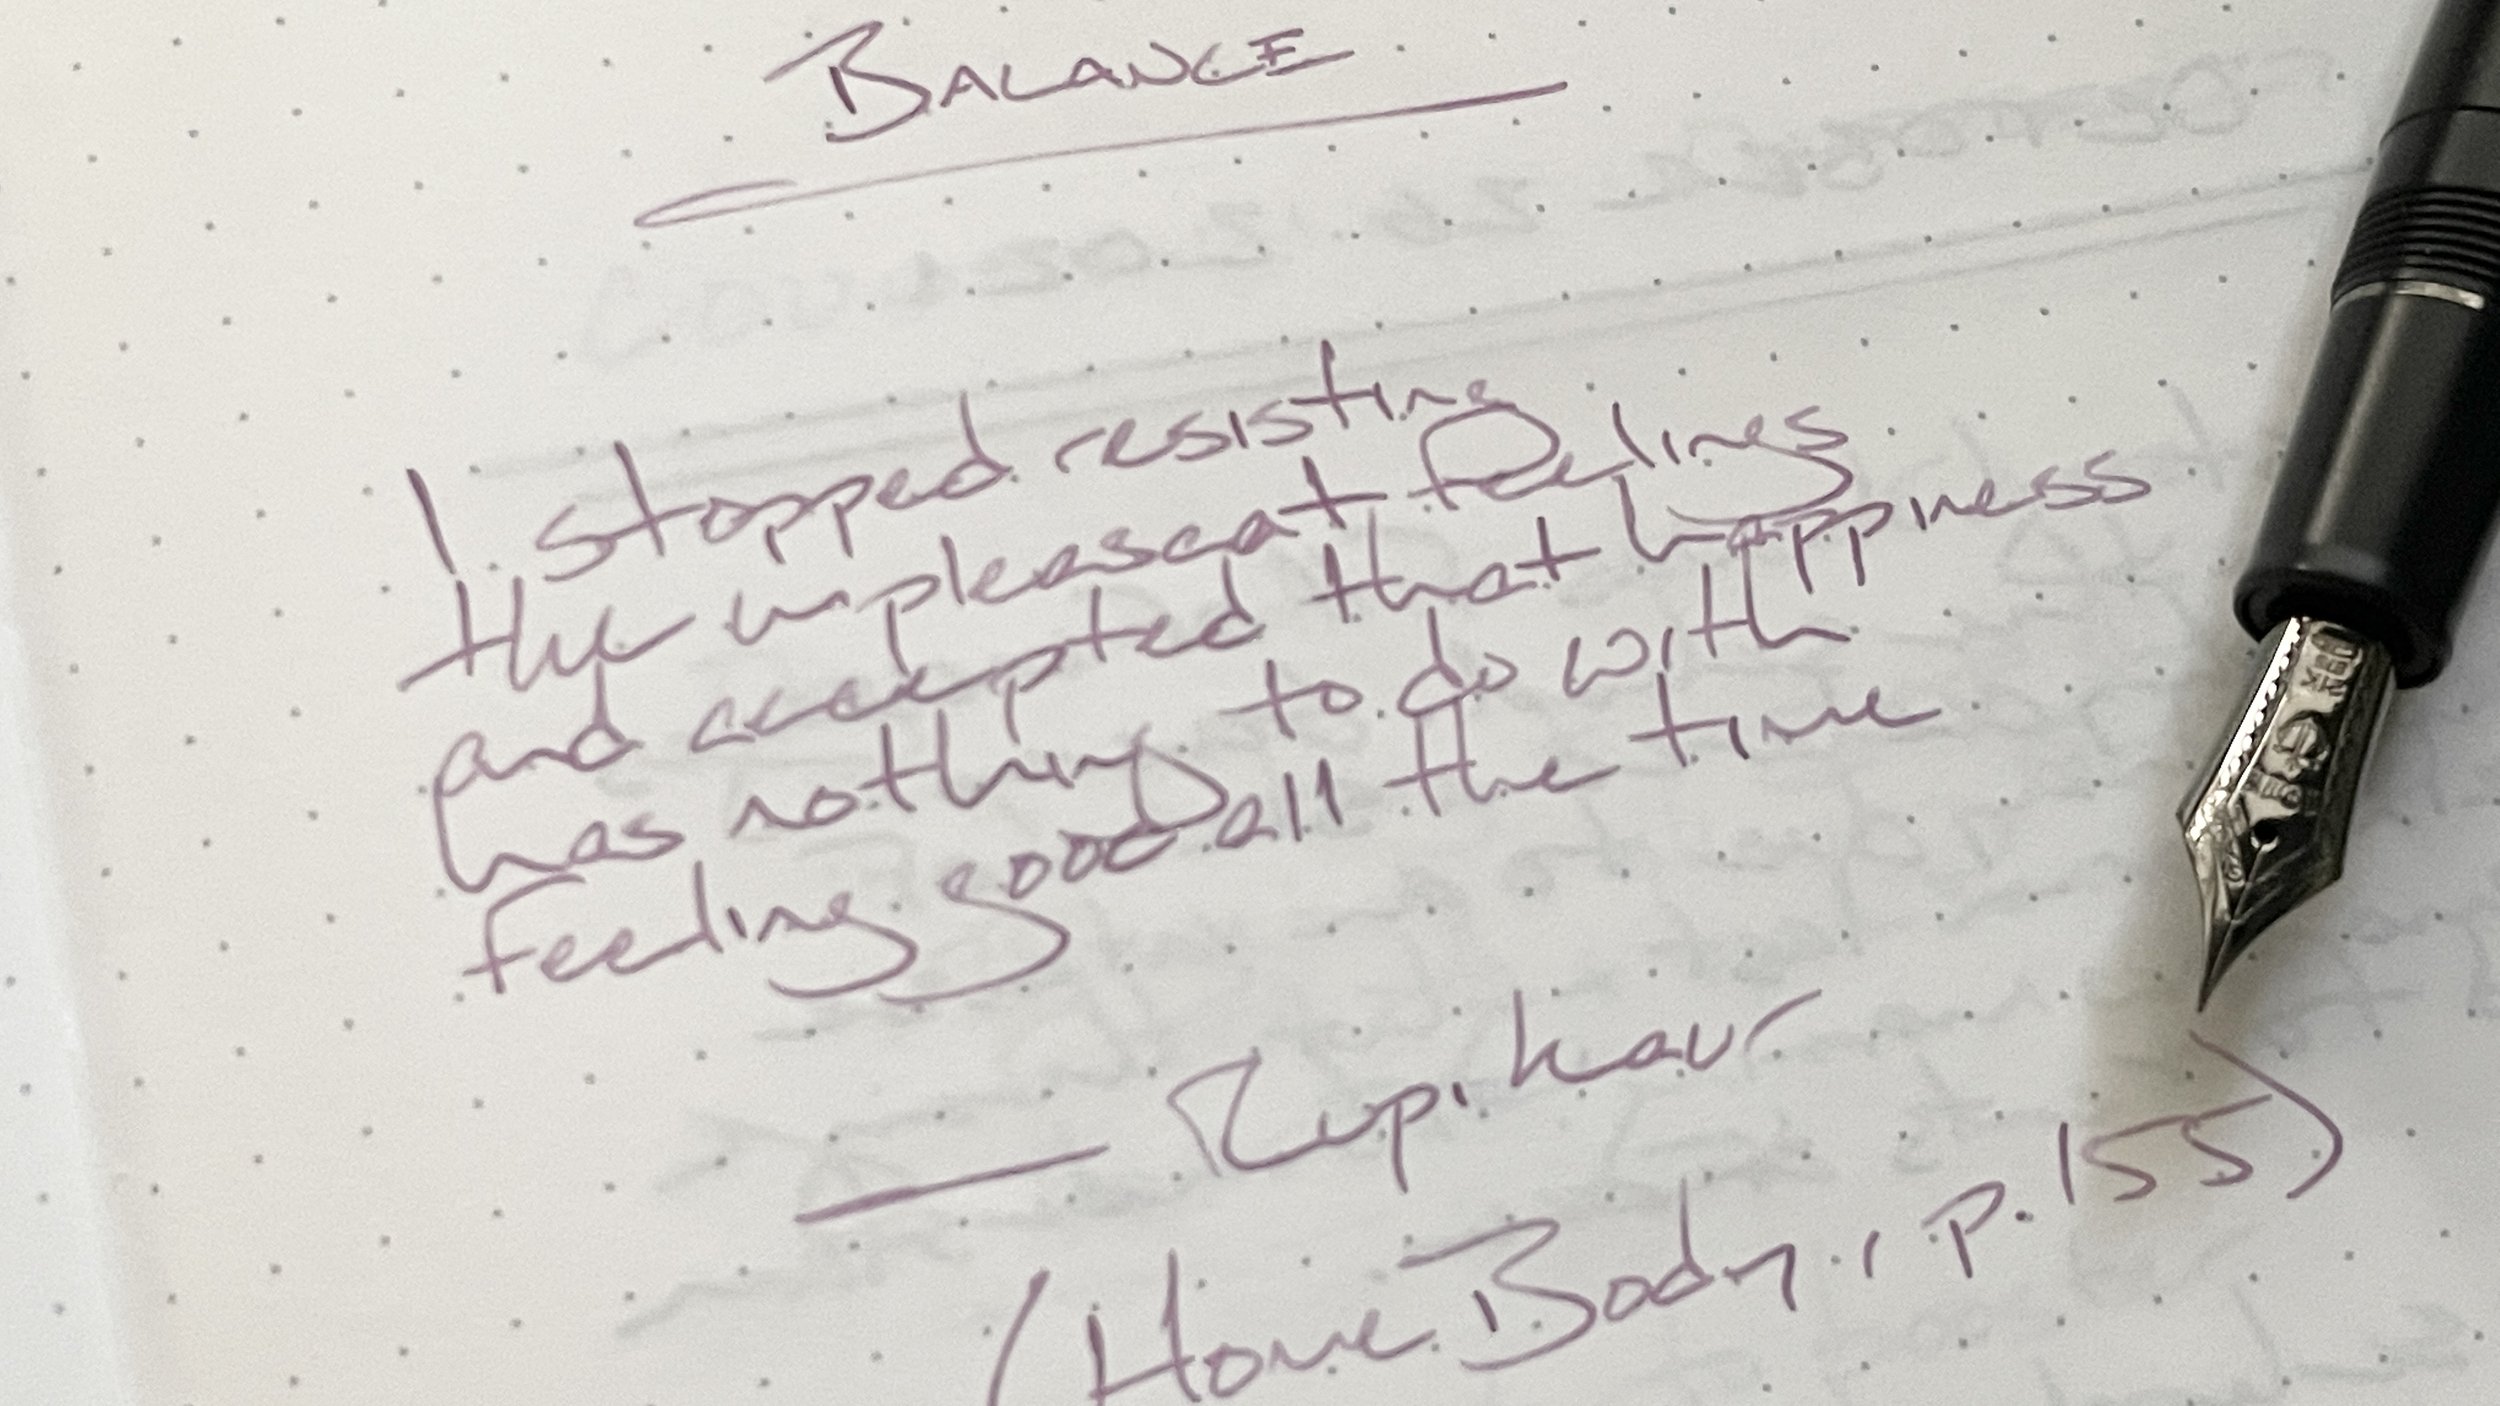 BALANCE
I stopped resisting
the unpleasant feelings
and accepted that happiness
has nothing to do with
feeling good all the time
— Rupi Kaur
(Home Body, p. 155)